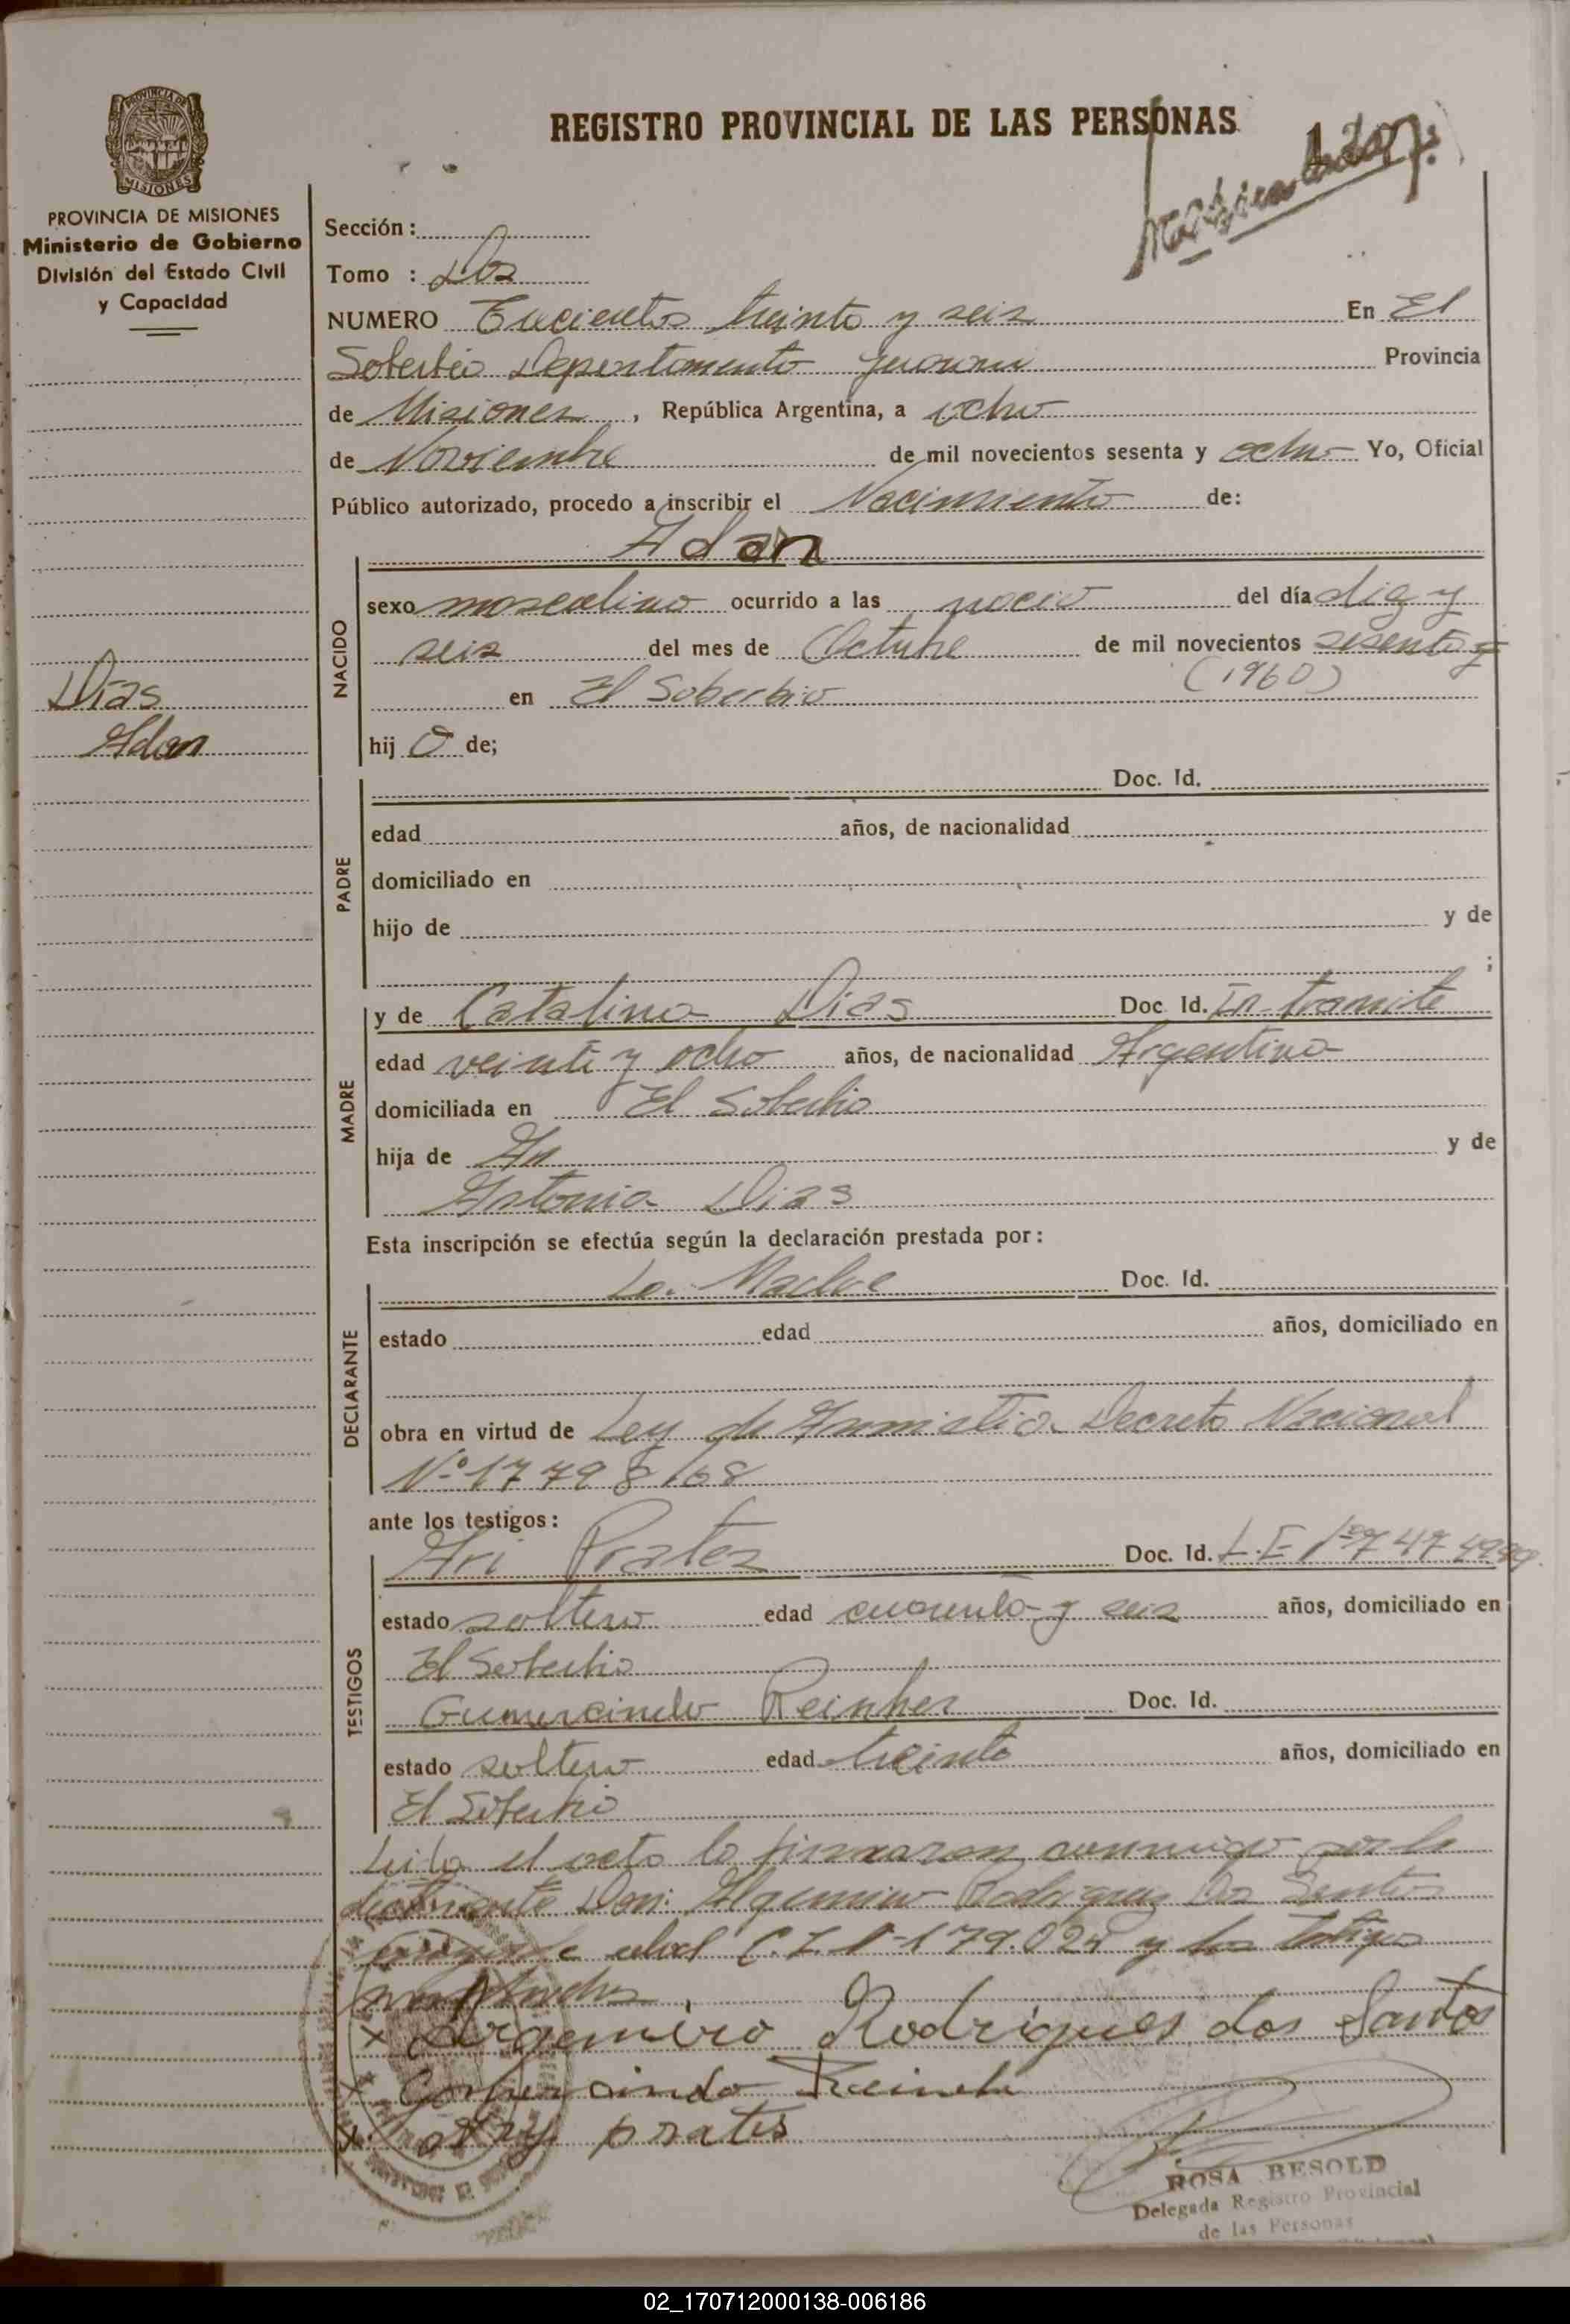 REGISTRO PROVINCIAL DE LAS PERSONAS
PROVINCIA DE MISIONES
Ministerio de Gobierno
División del Estado Civil
y Capacidad
Sección:
Tomo : Dos
NUMERO Trecientos treinta y seis En El
Soberbio Departamento Guarani Provincia
de Misiones, República Argentina, a ocho
de Noviembre de mil novecientos sesenta y ocho Yo, Oficial
Público autorizado, procedo a inscribir el Nacimiento de:
Adan
NACIDO
sexo masculino ocurrido a las del día diez y
seis del mes de Octubre de mil novecientos sesenta y
(1960)
en El Soberbio
Dias
Adan
hij o de;
PADRE
Doc. Id.
edad años, de nacionalidad
domiciliado en
hijo de y de
;
MADRE
y de Catalina Dias Doc. Id. En tramite
edad veinti y ocho años, de nacionalidad Argentina
domiciliada en El Soberbio
hija de y de
Antonia Dias
Esta inscripción se efectúa según la declaración prestada por:
DECLARANTE
La Madre Doc. Id.
estado edad años, domiciliado en
obra en virtud de Ley de Amnistia Decreto Nacional
Nº 17798/68
ante los testigos:
TESTIGOS
Ari Prates Doc. Id. L.E
estado soltero edad cuarenta y seis años, domiciliado en
El Soberbio
Gumercindo Reinher Doc. Id.
estado soltero edad treinta años, domiciliado en
El Soberbio
Leida el acta la firmaron conmigo por la
declarante Don: Argemiro Rodriguez Dos Santos
C.I. 179.024 y los testigos
x Argemiro Rodrigues dos Santos
x Gomercindo
x ary prates
ROSA BESOLD
Delegada Registro Provincial
de las Personas
02_170712000138-006186